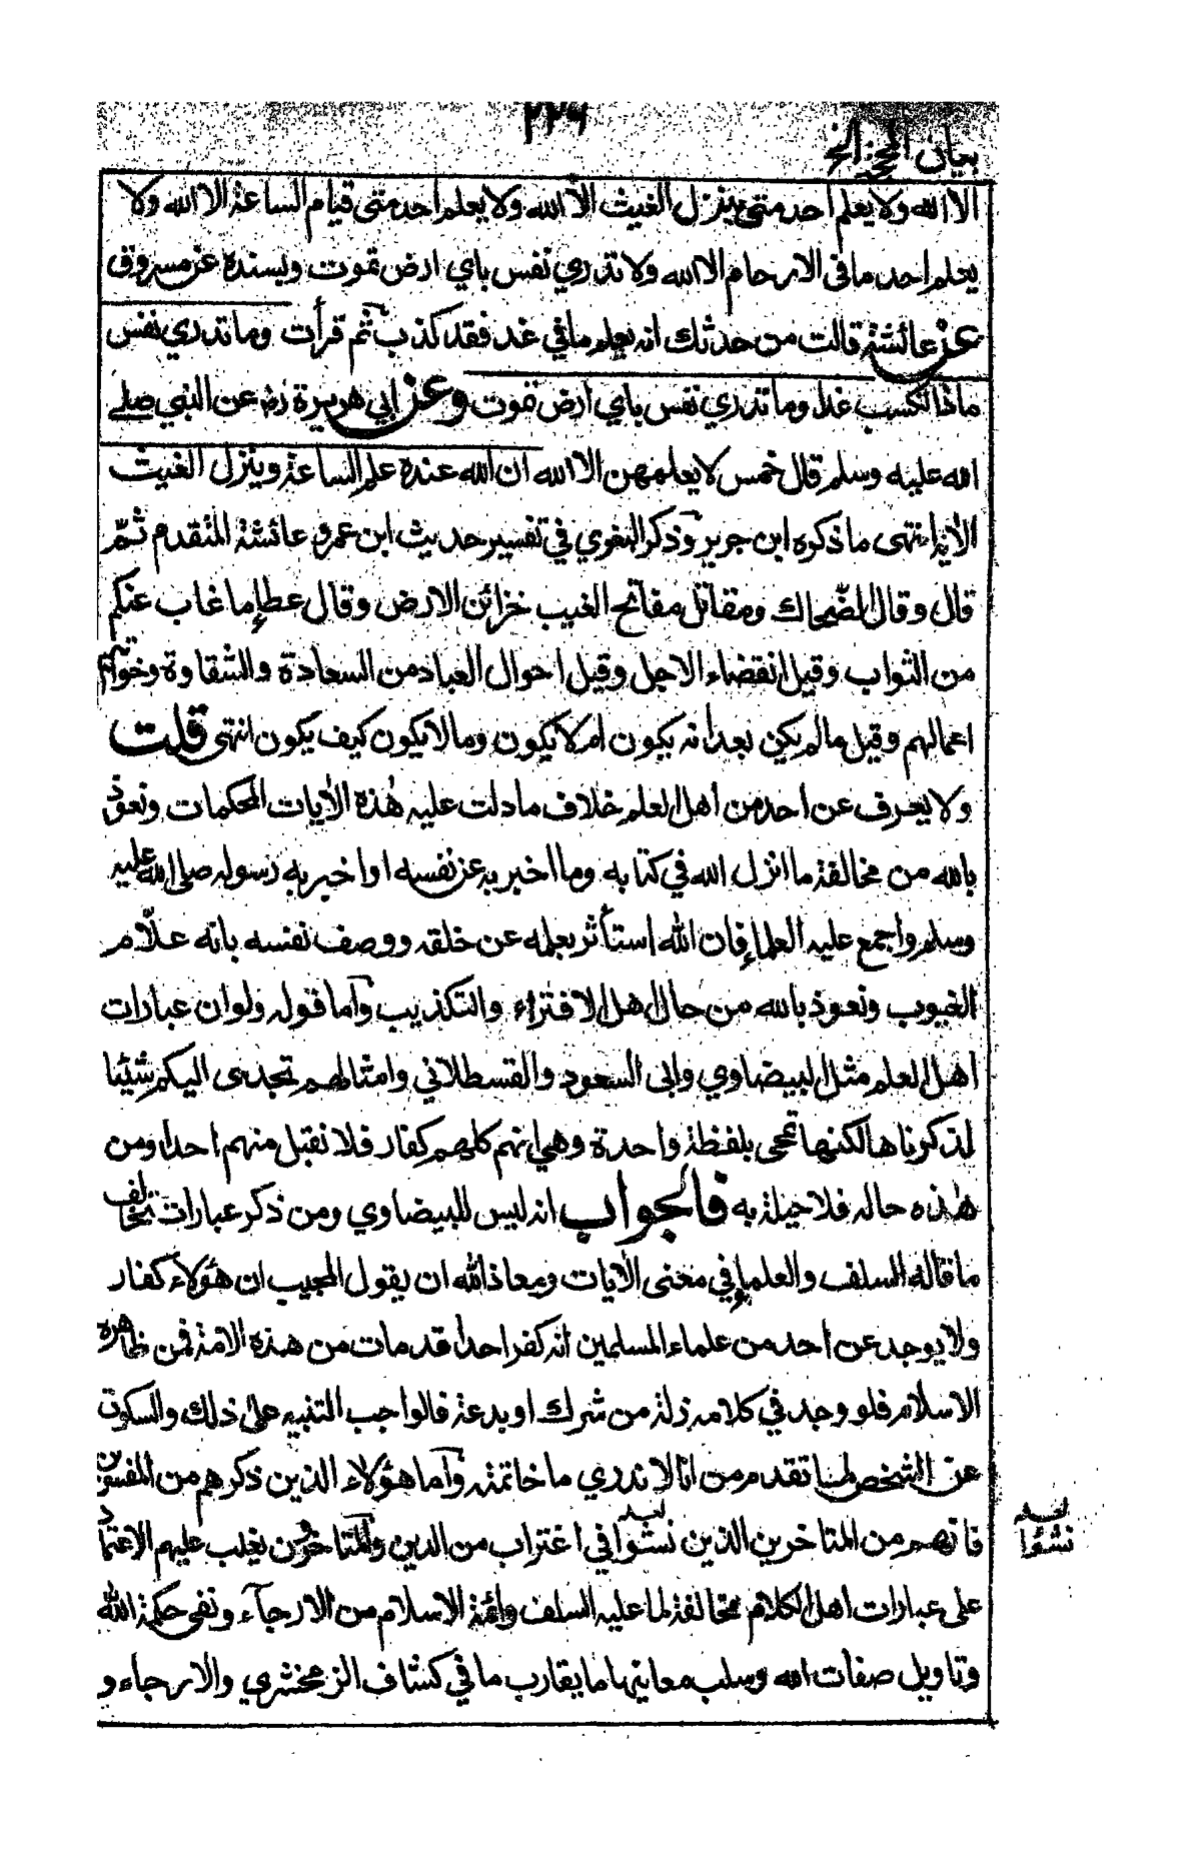 ٢٢٦
بيان المحجة الخ
الا الله ولا يعلم احد متى ينزل الغيث الا الله ولا يعلم احد متى قيام الساعة الا الله ولا
يعلم احد ما في الارحام الا الله ولا تدري نفس باي ارض تموت وبسنده عن مسروق
عن عائشة قالت من حدثك انه يعلم ما في غد فقد كذب ثم قرأت وما تدري نفس
ماذا تكسب غدا وما تدري نفس باي ارض تموت وعن ابي هريرة رضه عن النبي صلى
الله عليه وسلم قال خمس لا يعلمهن الا الله ان الله عنده علم الساعة وينزل الغيث
الأية انتهى ما ذكره ابن جرير وذكر البغوي في تفسير حديث ابن عمر وعائشة المتقدم ثمّ
قال وقال الضّحاك ومقاتل مفاتح الغيب خزائن الارض وقال عطاء ما غاب عنكم
من الثواب وقيل انقضاء الاجل وقيل احوال العباد من السعادة والشقاوة وخواتم
اعمالهم وقيل ما لم يكن بعد انه يكون ام لا يكون وما لا يكون كيف يكون انتهى قلت
ولا يعرف عن احد من اهل العلم خلاف ما دلت عليه هذه الأيات المحكمات ونعوذ
بالله من مخالفة ما انزل الله في كتابه وما اخبر به عن نفسه او اخبر به رسوله صلى الله عليه
وسلم واجمع عليه العلماء فان الله استأثر بعلمه عن خلقه ووصف نفسه بانه علّام
الغيوب ونعوذ بالله من حال اهل الافتراء والتكذيب وأما قوله ولو ان عبارات
اهل العلم مثل البيضاوي وابى السعود والقسطلاني وامثالهم تجدى اليكم شيئا
لذكرناها لكنها تمحى بلفظة واحدة وهي انهم كلهم كفار فلا نقبل منهم احدا ومن
هذه حاله فلا حيلة به فالجواب انه ليس للبيضاوي ومن ذكر عبارات تخالف
ما قاله السلف والعلماء في معنى الأيات ومعاذ الله ان يقول المجيب ان هؤلاء كفار
ولا يوجد عن احد من علماء المسلمين انه كفر احدا قد مات من هذه الامة فمن ظاهره
الاسلام فلو وجد في كلامه زلة من شرك او بدعة فالواجب التنبيه على ذلك والسكوت
عن الشخص لما تقدم من انا لا ندري ما خاتمته وأما هؤلاء الذين ذكرهم من المفسرين
فانهم من المتاخرين الذين نشئوا في اغتراب من الدين والمتاخرون يغلب عليهم الاعتماد
على عبارات اهل الكلام مخالفة لما عليه السلف وائمة الاسلام من الارجآء ونفى حكمة الله
وتاويل صفات الله وسلب معانيها ما يقارب ما في كشاف الزمخشري والارجاء و
نشئوا